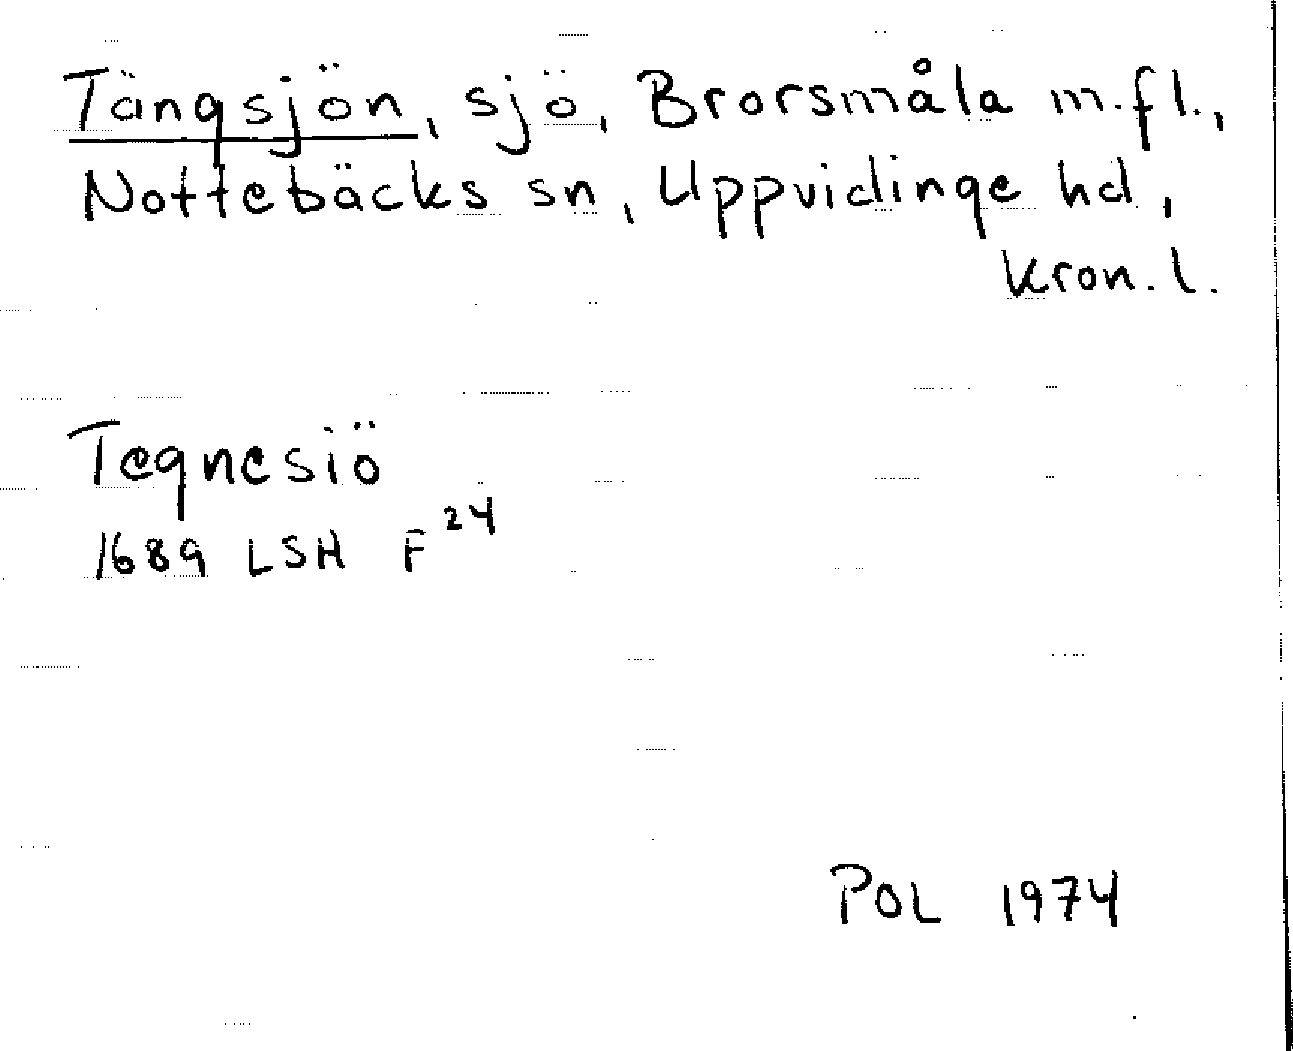 Tängsjön, sjö, Brorsmåla m.fl.,
Nottebäcks sn, Uppvidinge hd,
Kron. l.
Tegnesiö
1689 LSH F 24
POL 1974